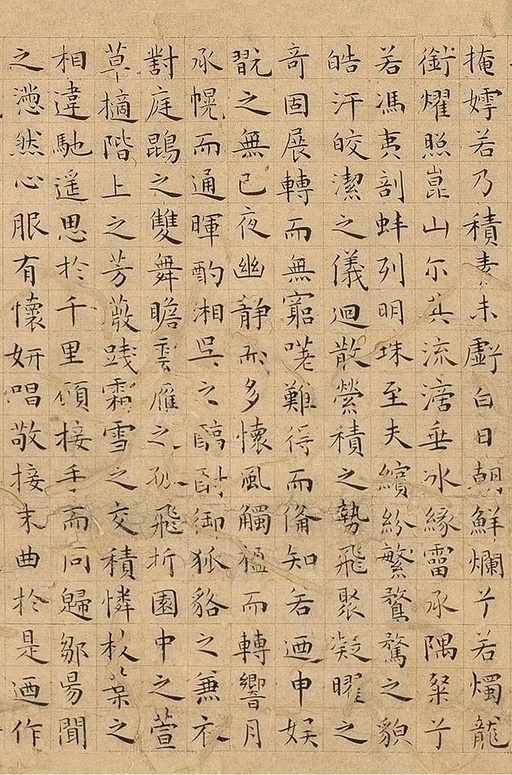 掩嫮若乃積素未虧白日朝鮮爛兮若燭龍
銜耀照崑山尔其流滴垂冰緣霤承隅粲兮
若馮夷剖蚌列明珠至夫繽紛繁騖驚之貌
皓汗皎潔之儀迴散縈積之勢飛聚凝曜之
奇固展轉而無窮嗟難得而備知若迺申娱
翫之無已夜幽静而多懷風觸楹而轉響月
承幌而通暉酌湘吳之醇酎御狐貉之兼衣
對庭鵾之雙舞瞻雲雁之孤飛折園中之萱
草摘階上之芳薇踐霜雪之交積憐枝葉之
相違馳遥思於千里願接手而同歸鄒昜聞
之懣然心服有懷妍唱敬接末曲於是迺作